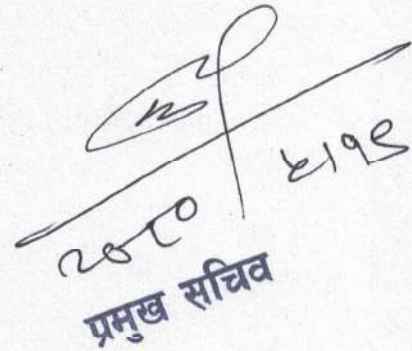 २०८०
५।१९
प्रमुख सचिव